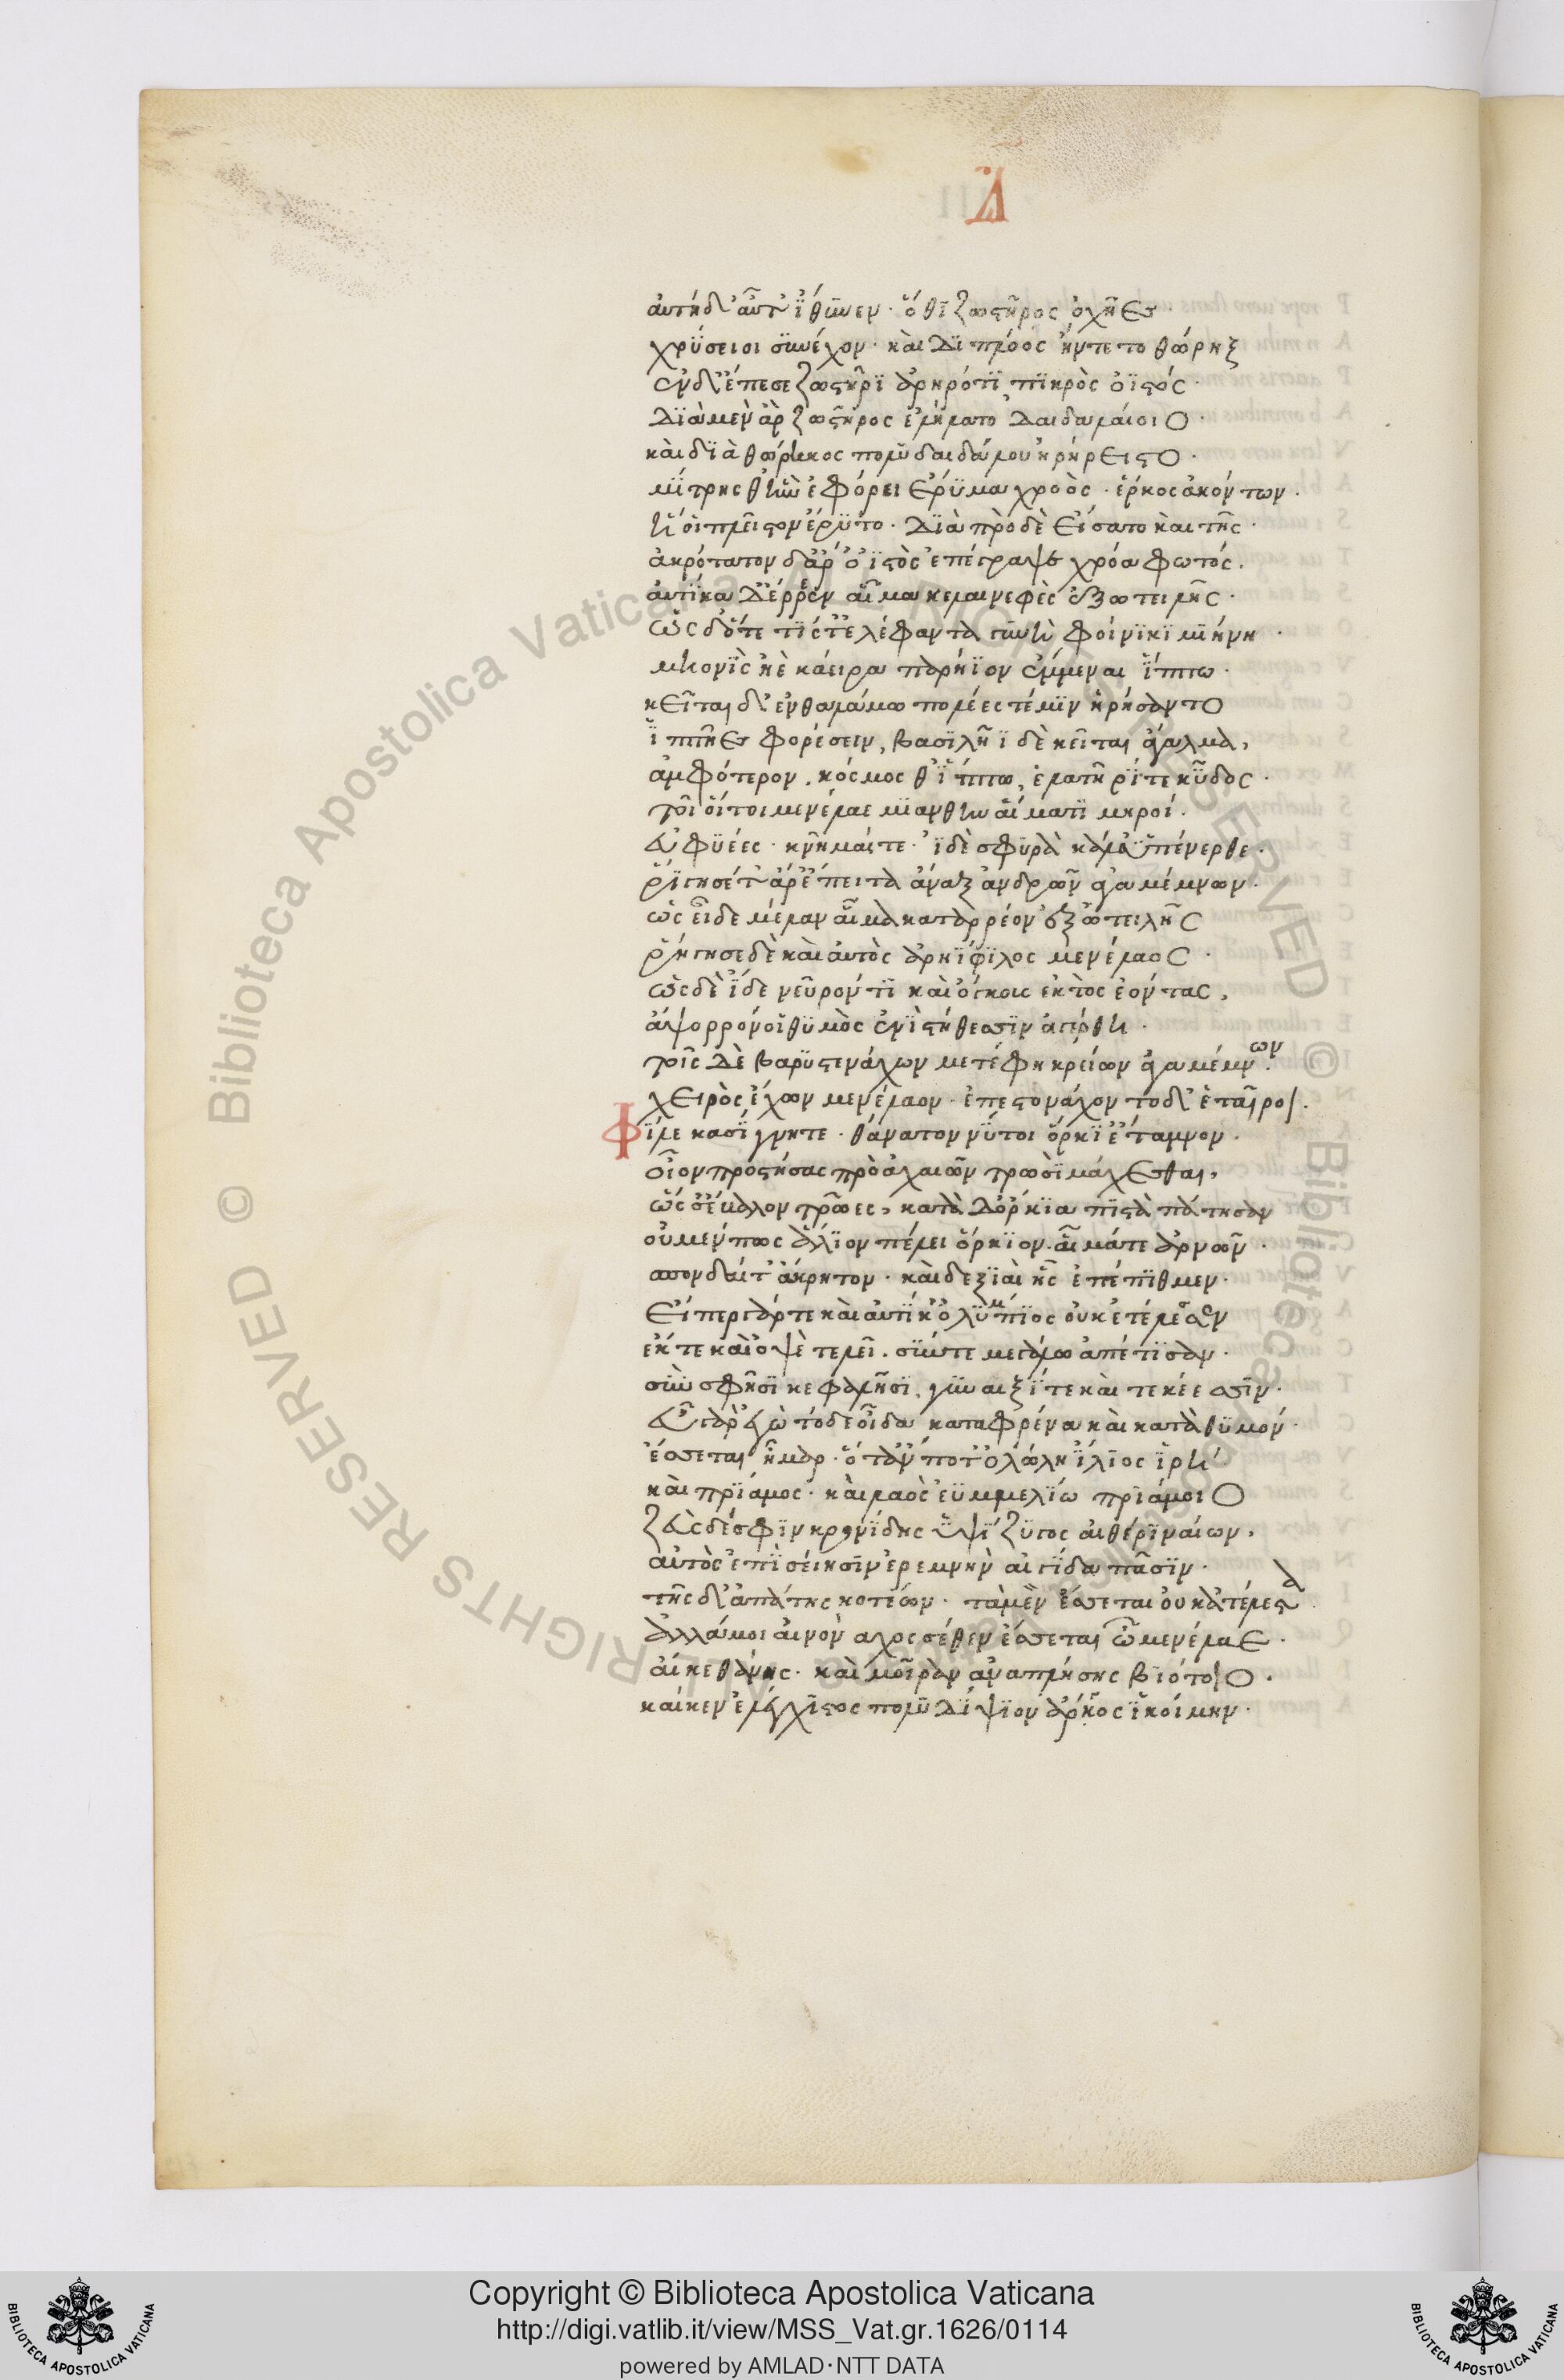 Δ
ἀυτὴ δ' ἆυτ' ΐθυνεν· ὅθϊ ζωστῆρος ὀχῆες·
χρύσειοι σϋνέχον· κὰι δϊπλόος ἤντετο θώρηξ
ἐν δ' έπεσε ζωστῆρϊ ἀρηρότϊ πϊκρὸς ὀϊστός·
Δϊὰ μὲν ὰρ ζωστῆρος ἐλήλατο Δαιδαλέοιο·
κὰι δϊὰ θώρηκος πολϋδαιδάλου ἠρήρειστο·
μίτρης θ' ἣν ἐφόρει ἐρϋμα χροὸς· ἕρκος ἀκόντων·
ἥ ὁι πλεῖστον έρϋτο· Δϊὰ πρὸ δὲ εἴσατο κὰι τῆς·
ἀκρότατον δ' ὰρ' ὀϊστὸς ἐπέγραψε χρόα φωτός.
ἀυτίκα Δ' έρρεεν αἷμα κελαινεφὲς ἐξ ωτειλῆς·
ὡς δ' ὅτε τΐς τ' ελέφαντα γϋνὴ φοίνϊκϊ μϊήνη·
μηονῒς ἠὲ κάειρα παρήϊον ἔμμεναι ἵππω·
κεῖται δ' ἐν θαλάμω πολέες τέ μϊν ἠρήσαντο
ἱππῆες φορέειν, βασϊλῆϊ δὲ κεῖται ἄγαλμα,
ἀμφότερον, κόσμος θ' ἵππω, ἐλατῆρΐ τε κῦδος·
τοῖι ὅι τοι μενέλαε μϊάνθην αἵματϊ μηροί.
ἐυφϋέες· κνῆμαί τε· ϊδὲ σφϋρὰ κάλ' ϋπένερθε·
ῥίγησέ τ' ὰρ ἔπειτα άναξ ἀνδρῶν ἀγαμέμνων·
ὡς εἶδε μέλαν αἷμα καταρρέον ἐξ ὠτειλῆς
ῥίγησε δὲ κὰι ἀυτὸς ἀρηΐφϊλος μενέλαος·
ὡς δὲ ΐδε νεῦρόν τϊ κὰι ὄγκους ἐκτὸς ἐόντας,
ἀψορρόν οἱ θϋμὸς ἐνϊ στήθεσσϊν ἀγέρθη·
τοῖς Δὲ βαρϋστενάχων μετέφη κρείων ἀγαμέμνων·
χειρὸς ἔχων μενέλαον· ἐπεστονάχοντο δ' ἑταῖροι.
Φΐλε κασΐγνητε· θάνατον νΰ τοι ὅρκϊ' ἔταμνον·
οἶον προστήσας πρὸ ἀχαιῶν τρωσὶ μάχεσθαι,
ὡς σ' έβαλον τρῶες, κατὰ Δ' ὅρκϊα πϊστὰ πάτησαν
οὐ μέν πως ἅλϊον πέλει ὅρκϊον αἷμά τε ἀρνῶν·
σπονδαί τ' ἄκρητοι· κὰι δεξϊαὶ ἧς ἐπέπϊθμεν·
Εί περ γάρ τε κὰι ἀυτίκ' ὀλύμπϊος ουκ ετέλεσσεν
έκ τε κὰι ὀψὲ τελεῖ· σύν τε μεγάλω ἀπέτϊσαν·
σὺν σφῆσϊ κεφαλῆσϊ, γϋναιξΐ τε κὰι τεκέεσσϊν·
Ἐυ γὰρ ἐγὼ τόδε οἶδα κατα φρένα κὰι κατὰ θϋμόν·
έσσεται ἦμαρ· ὅτ' ὰν ποτ' ὀλώλη ΐλϊος ϊρὴ
κὰι πρϊαμος· κὰι λαὸς ἐϋμμελίω πρϊάμοιο
ζεὺς δέ σφϊν κρονΐδης ὑψΐζϋγος αἰθέρϊ ναίων,
αὐτὸς ἐπϊσσείησϊν ἐρεμνὴν αἰγΐδα πᾶσϊν·
τῆς δ' ἀπάτης κοτέων· τὰ μὲν έσσεται ὀυκ ἀτέλεστα·
ἀλλά μοι ἀινὸν αχος σέθεν έσσεται ὦ μενέλαε·
άι κε θάνης· κὰι μοῖραν ἀναπλήσης βϊότοιο.
καί κεν ἐλέγχϊστος πολϋδΐψϊον ἄργος ϊκοίμην·
Copyright © Biblioteca Apostolica Vaticana
http://digi.vatlib.it/view/MSS_Vat.gr.1626/0114
powered by AMLAD·NTT DATA
BIBLIOTECA APOSTOLICA VATICANA
BIBLIOTECA APOSTOLICA VATICANA
© Biblioteca Apostolica Vaticana ALL RIGHTS RESERVED © Biblioteca Apostolica Vaticana ALL RIGHTS RESERVED